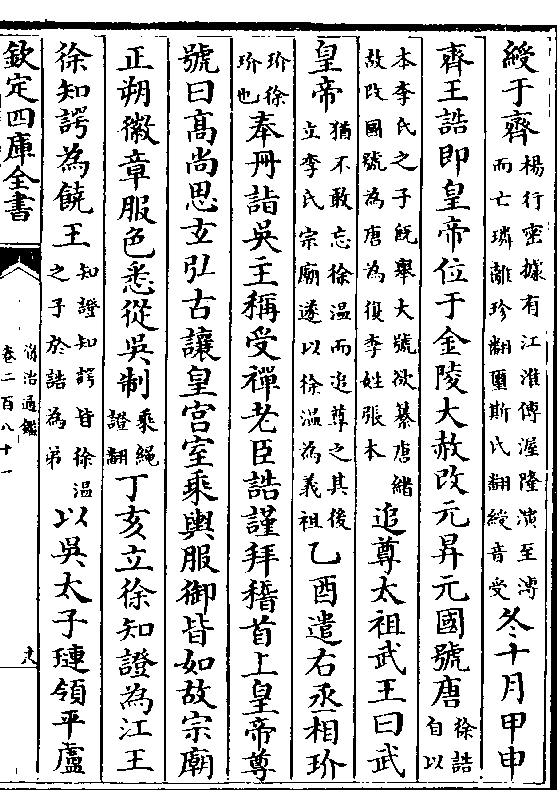 綬于齊楊行密據有江淮傳渥隆演至溥而亡璘離珍翻璽斯氏翻綬音受冬十月甲申
齊王誥即皇帝位于金陵大赦改元昇元國號唐徐誥自以
本李氏之子既舉大號欲纂唐緒故改國號為唐為復李姓張本追尊太祖武王曰武
皇帝猶不敢忘徐温而追尊之其後立李氏宗廟遂以徐温為義祖乙酉遣右丞相玠
玠徐玠也奉冊詣吳主稱受禪老臣誥謹拜稽首上皇帝尊
號曰高尚思玄弘古讓皇宫室乘輿服御皆如故宗廟
正朔徽章服色悉從吳制乘繩證翻丁亥立徐知證為江王
徐知諤為饒王知證知諤皆徐温之子於誥為弟以吳太子璉領平盧
欽定四庫全書
資治通鑑
卷二百八十一